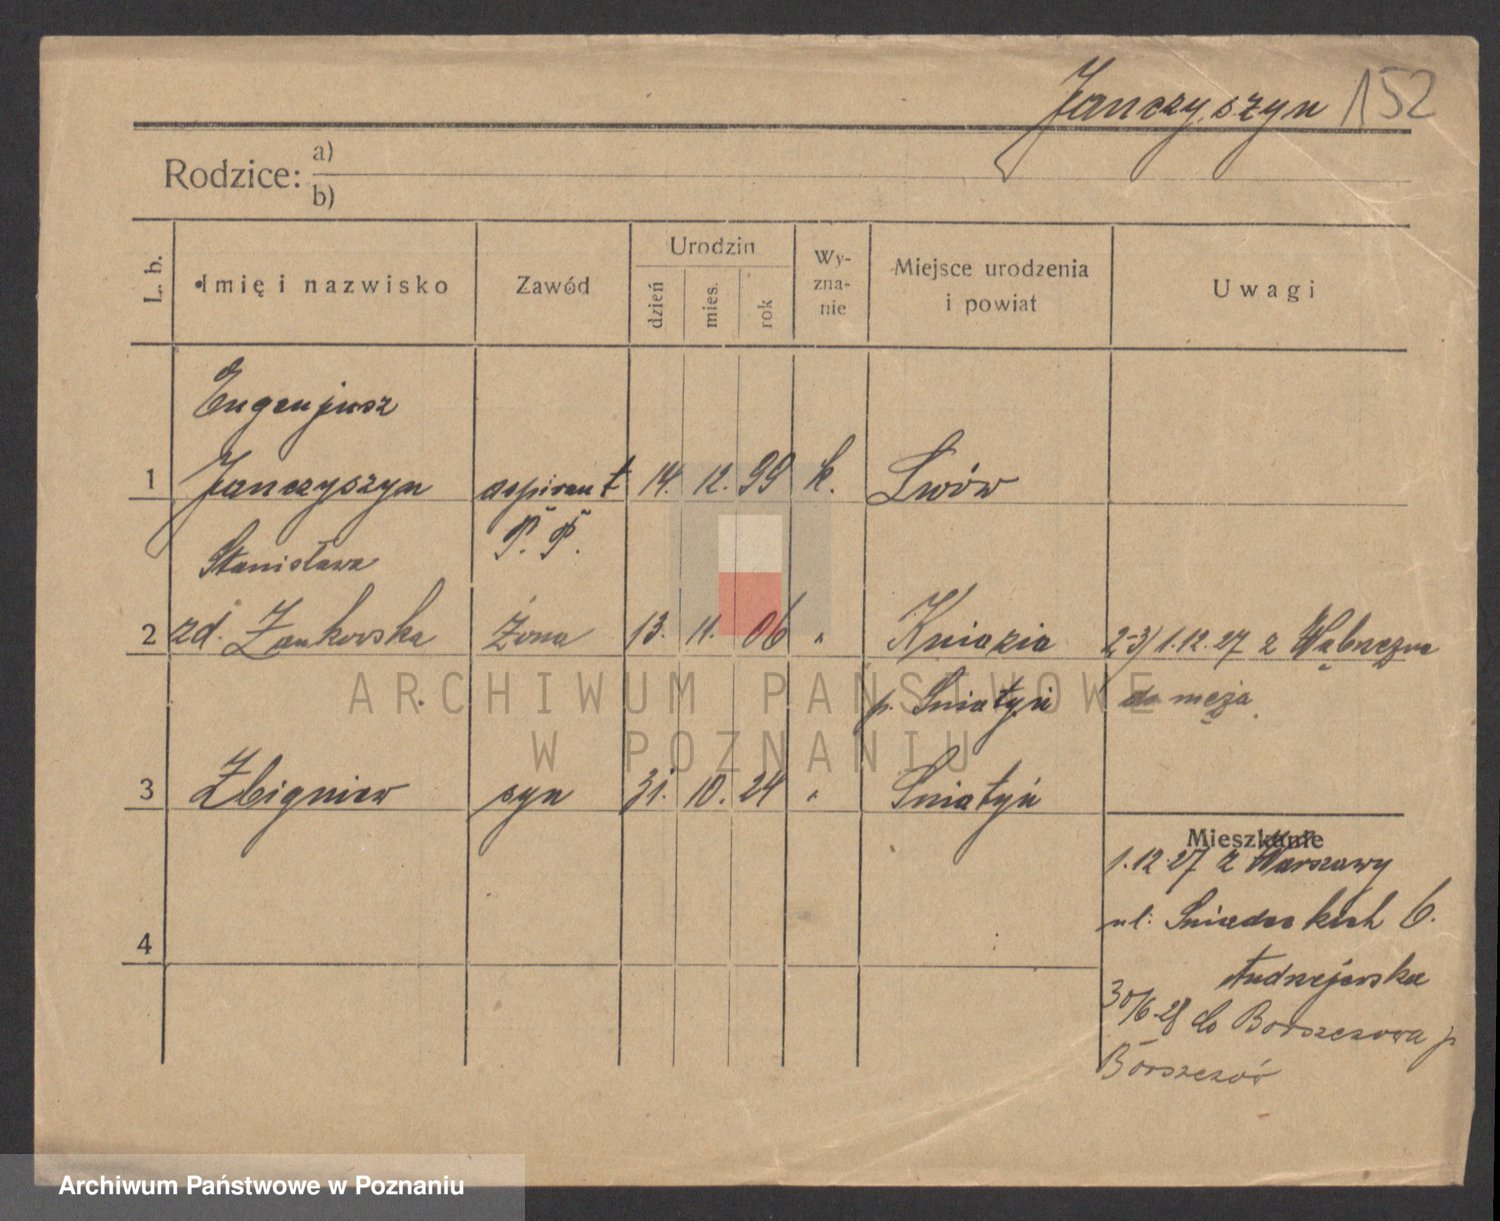 Janczyszyn 152
Rodzice: a)
b)
L. b. Imię i nazwisko Zawód Urodzin dzień mies. rok Wy-zna-nie Miejsce urodzenia i powiat Uwagi
Eugenjusz
1 Janczyszyn aspirant 14. 12. 99 k. Lwów
Stanisława P. P.
2 zd. Żona 13. 11. 06 " Kniazia 2-3) 1.12.27 z Wąbrzeźna
p. Śniatyń do męża
3 Zbigniew syn 31. 10. 24 " Śniatyń
Mieszkanie
1.12.27 z Warszawy
4 ul. Śniadeckich 6.
30/6.28 do Borszczowa p
Borszczów
ARCHIWUM PAŃSTWOWE
W POZNANIU
Archiwum Państwowe w Poznaniu